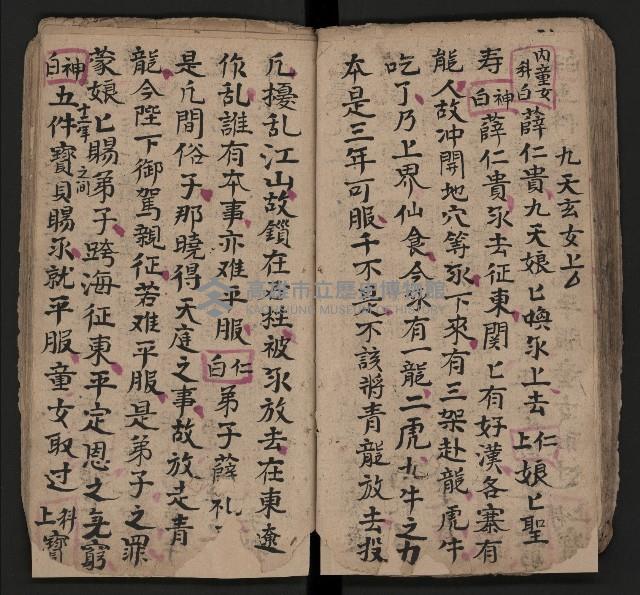 九天玄女上
內童女科白薛仁貴九天娘匕喚你上去仁上娘匕聖
寿神白薛仁貴你去征東関匕有好漢各寨有
能人故冲開地穴等你下來有三架赴龍虎牛
吃了乃上界仙食今你有一龍二虎九牛之力
本是三年可服千不是不該將青龍放去投
凢擾乱江山故鎖在 拄被你放去在東遼
作乱誰有本事亦难平服仁白弟子薛礼
是凢間俗子那曉得天庭之事故放走青
龍今陛下御駕親征若难平服是弟子之罪
蒙娘匕賜弟子跨海征東平定恩之无窮
神白五件寶貝賜你十二年之间就平服童女取过科上寶
高雄市立歷史博物館
KAOHSIUNG MUSEUM OF HISTORY